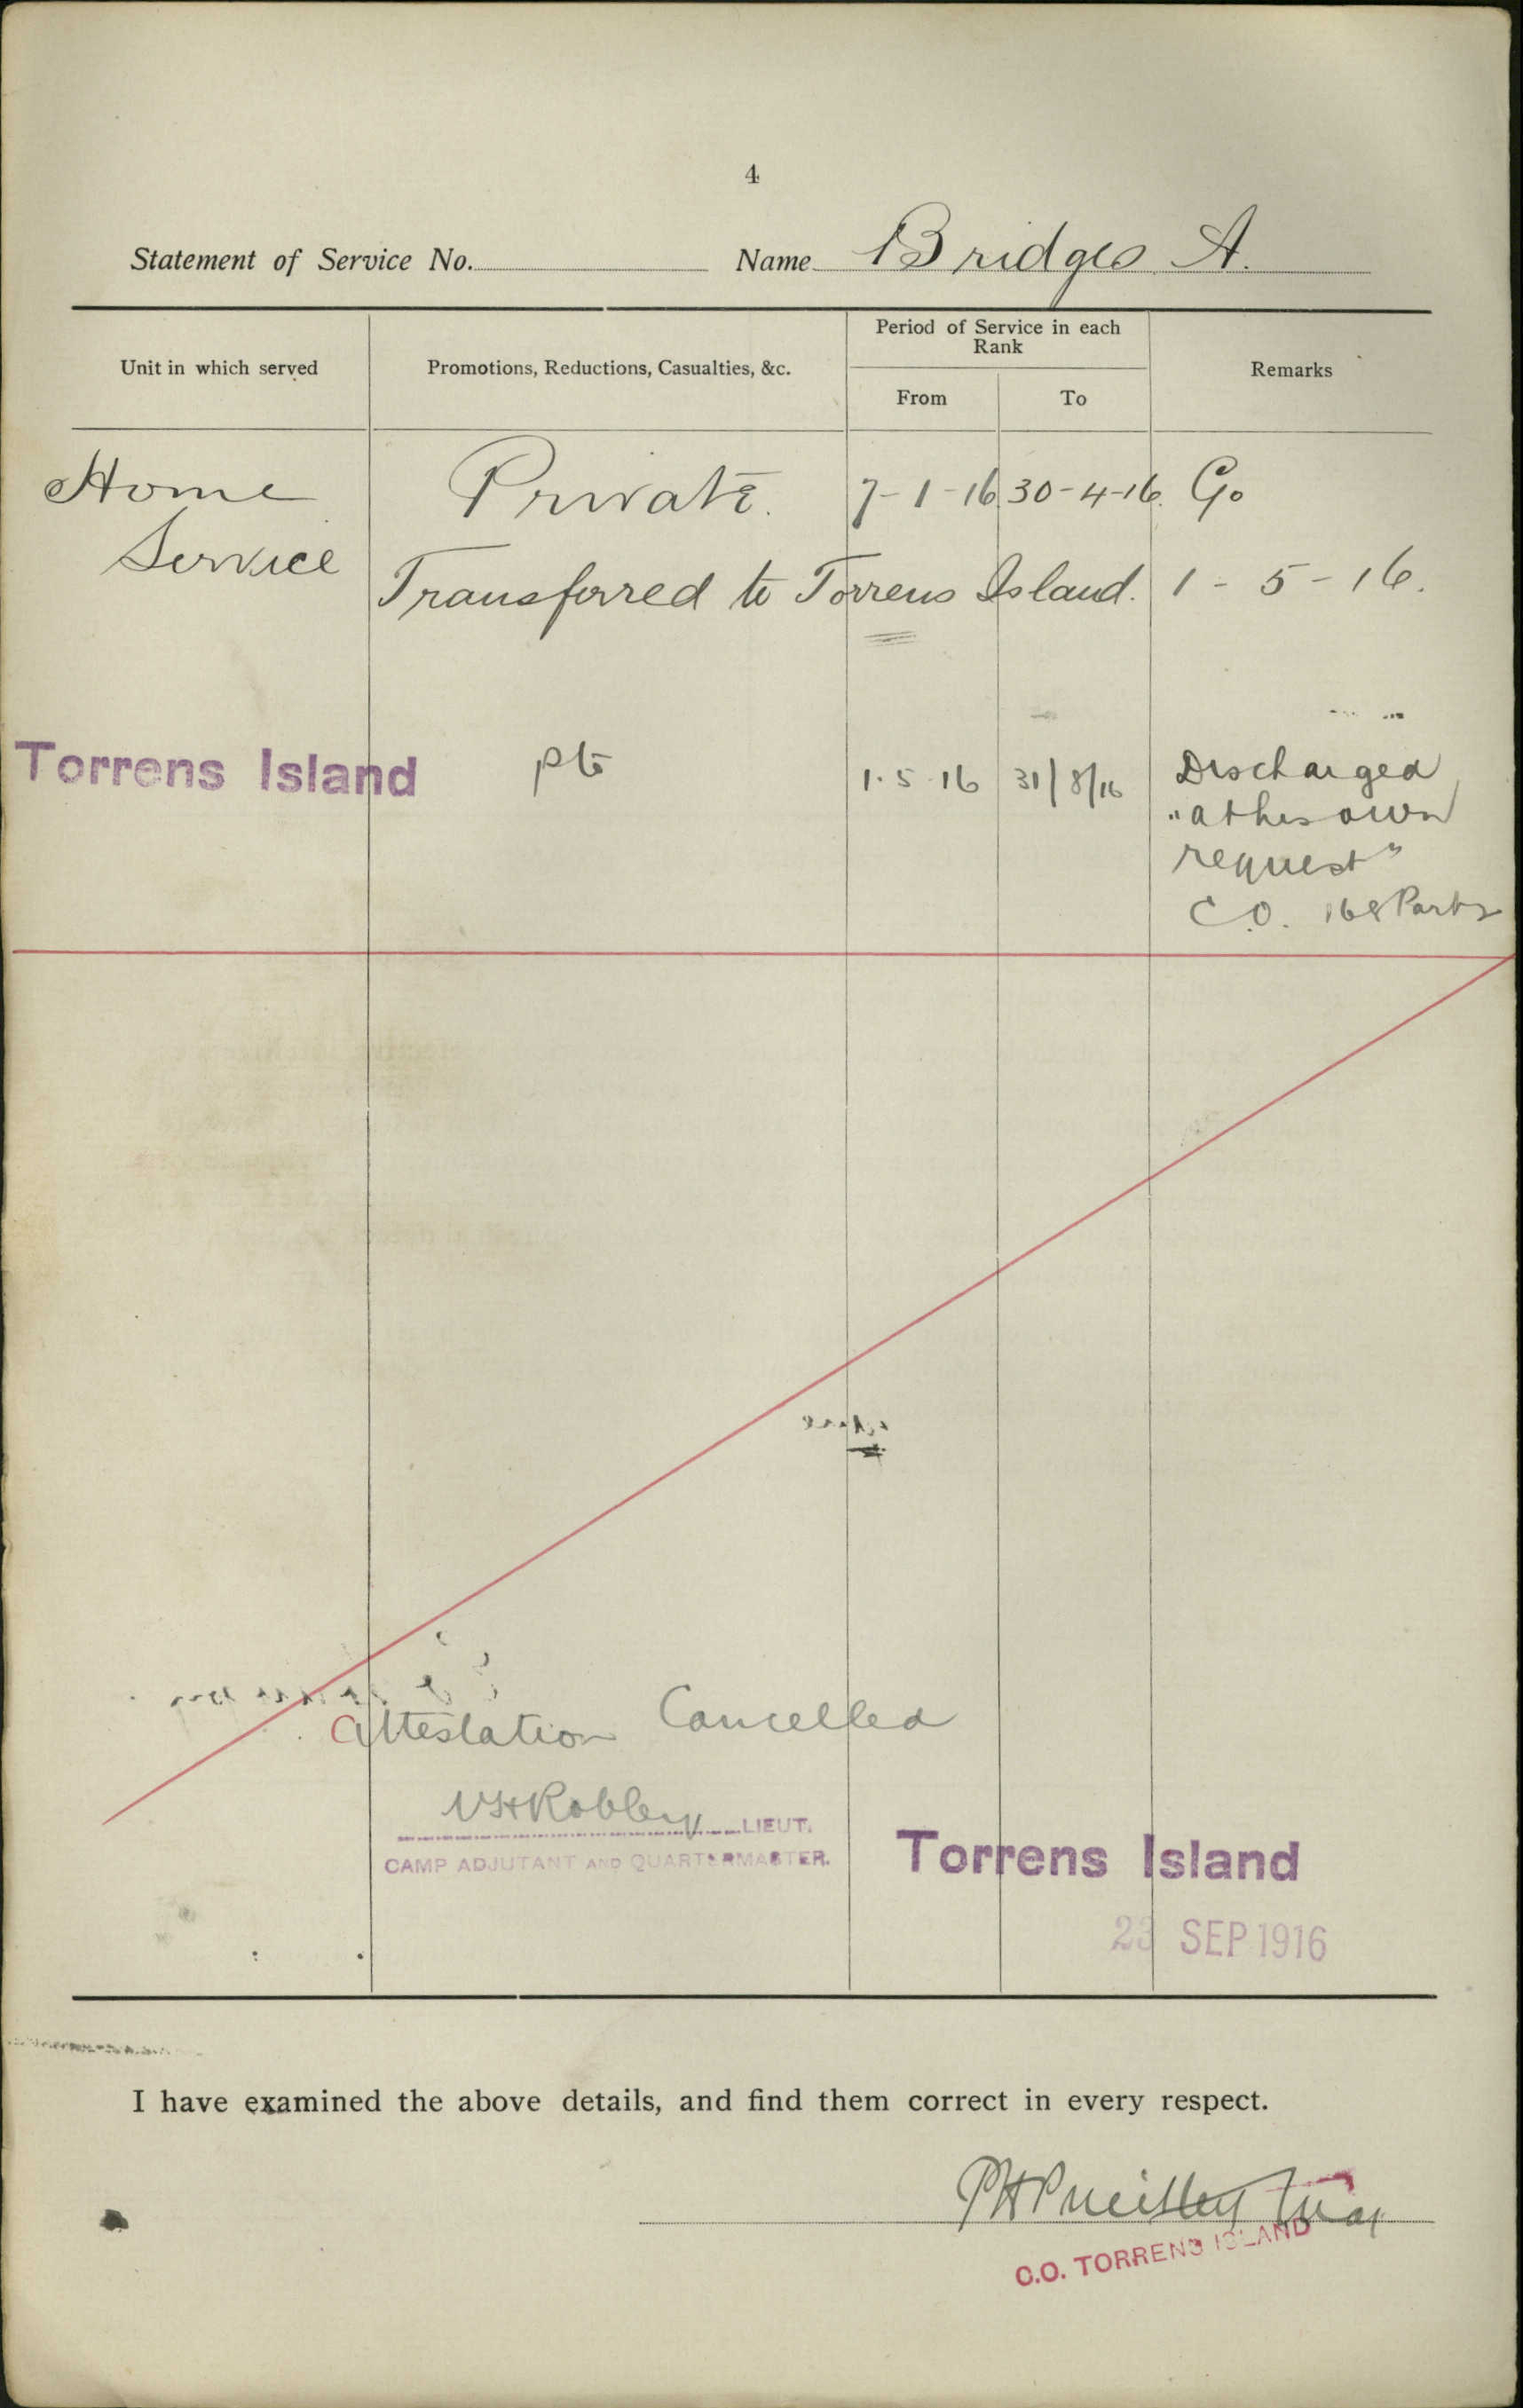 4
Statement of Service No. Name Bridges A.
Unit in which served
Promotions, Reductions, Casualties, &c.
Period of Service in each
Rank
From To
Remarks
Home Private. 7-1-16 30-4-16. Go
Service
Transferred to Torrens Island. 1-5-16.
Torrens Island pte 1.5.16 31/8/16 Discharged
"at his own
request"
C.O. 168 Part 2
Attestation Cancelled
LIEUT.
CAMP ADJUTANT AND QUARTERMASTER.
Torrens Island
23 SEP 1916
I have examined the above details, and find them correct in every respect.
Maj
C.O. TORRENS ISLAND